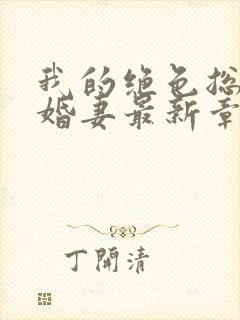 我的绝色总
婚妻最新章
丁開清